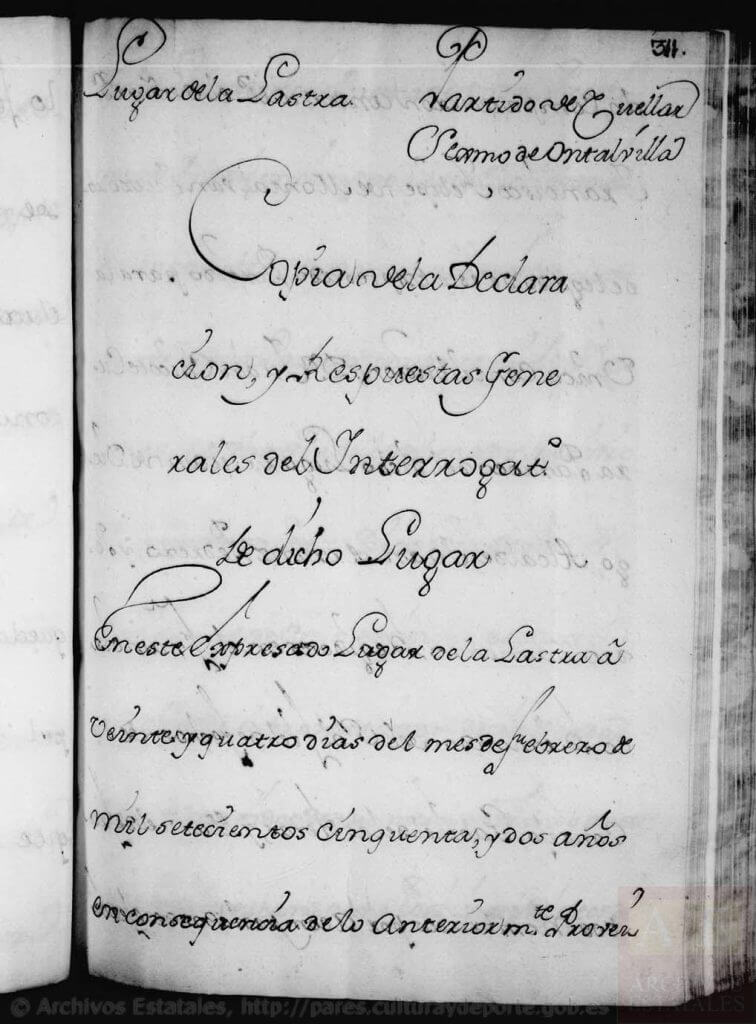 311.
Lugar de la Lastra Partido de Cuellar
Sexmo de Ontalvilla
Copia de la Declara
cion, y Respuestas Gene
rales del Interrogat.º
de dicho Lugar
En este Expresado Lugar de la Lastra â
Veinte y quatro dias del mes de febrero de
mil setecientos cinquenta, y dos años
en consequencia de lo Anteriorm.te Provei
© Archivos Estatales, http://pares.culturaydeporte.gob.es
ESTATALES